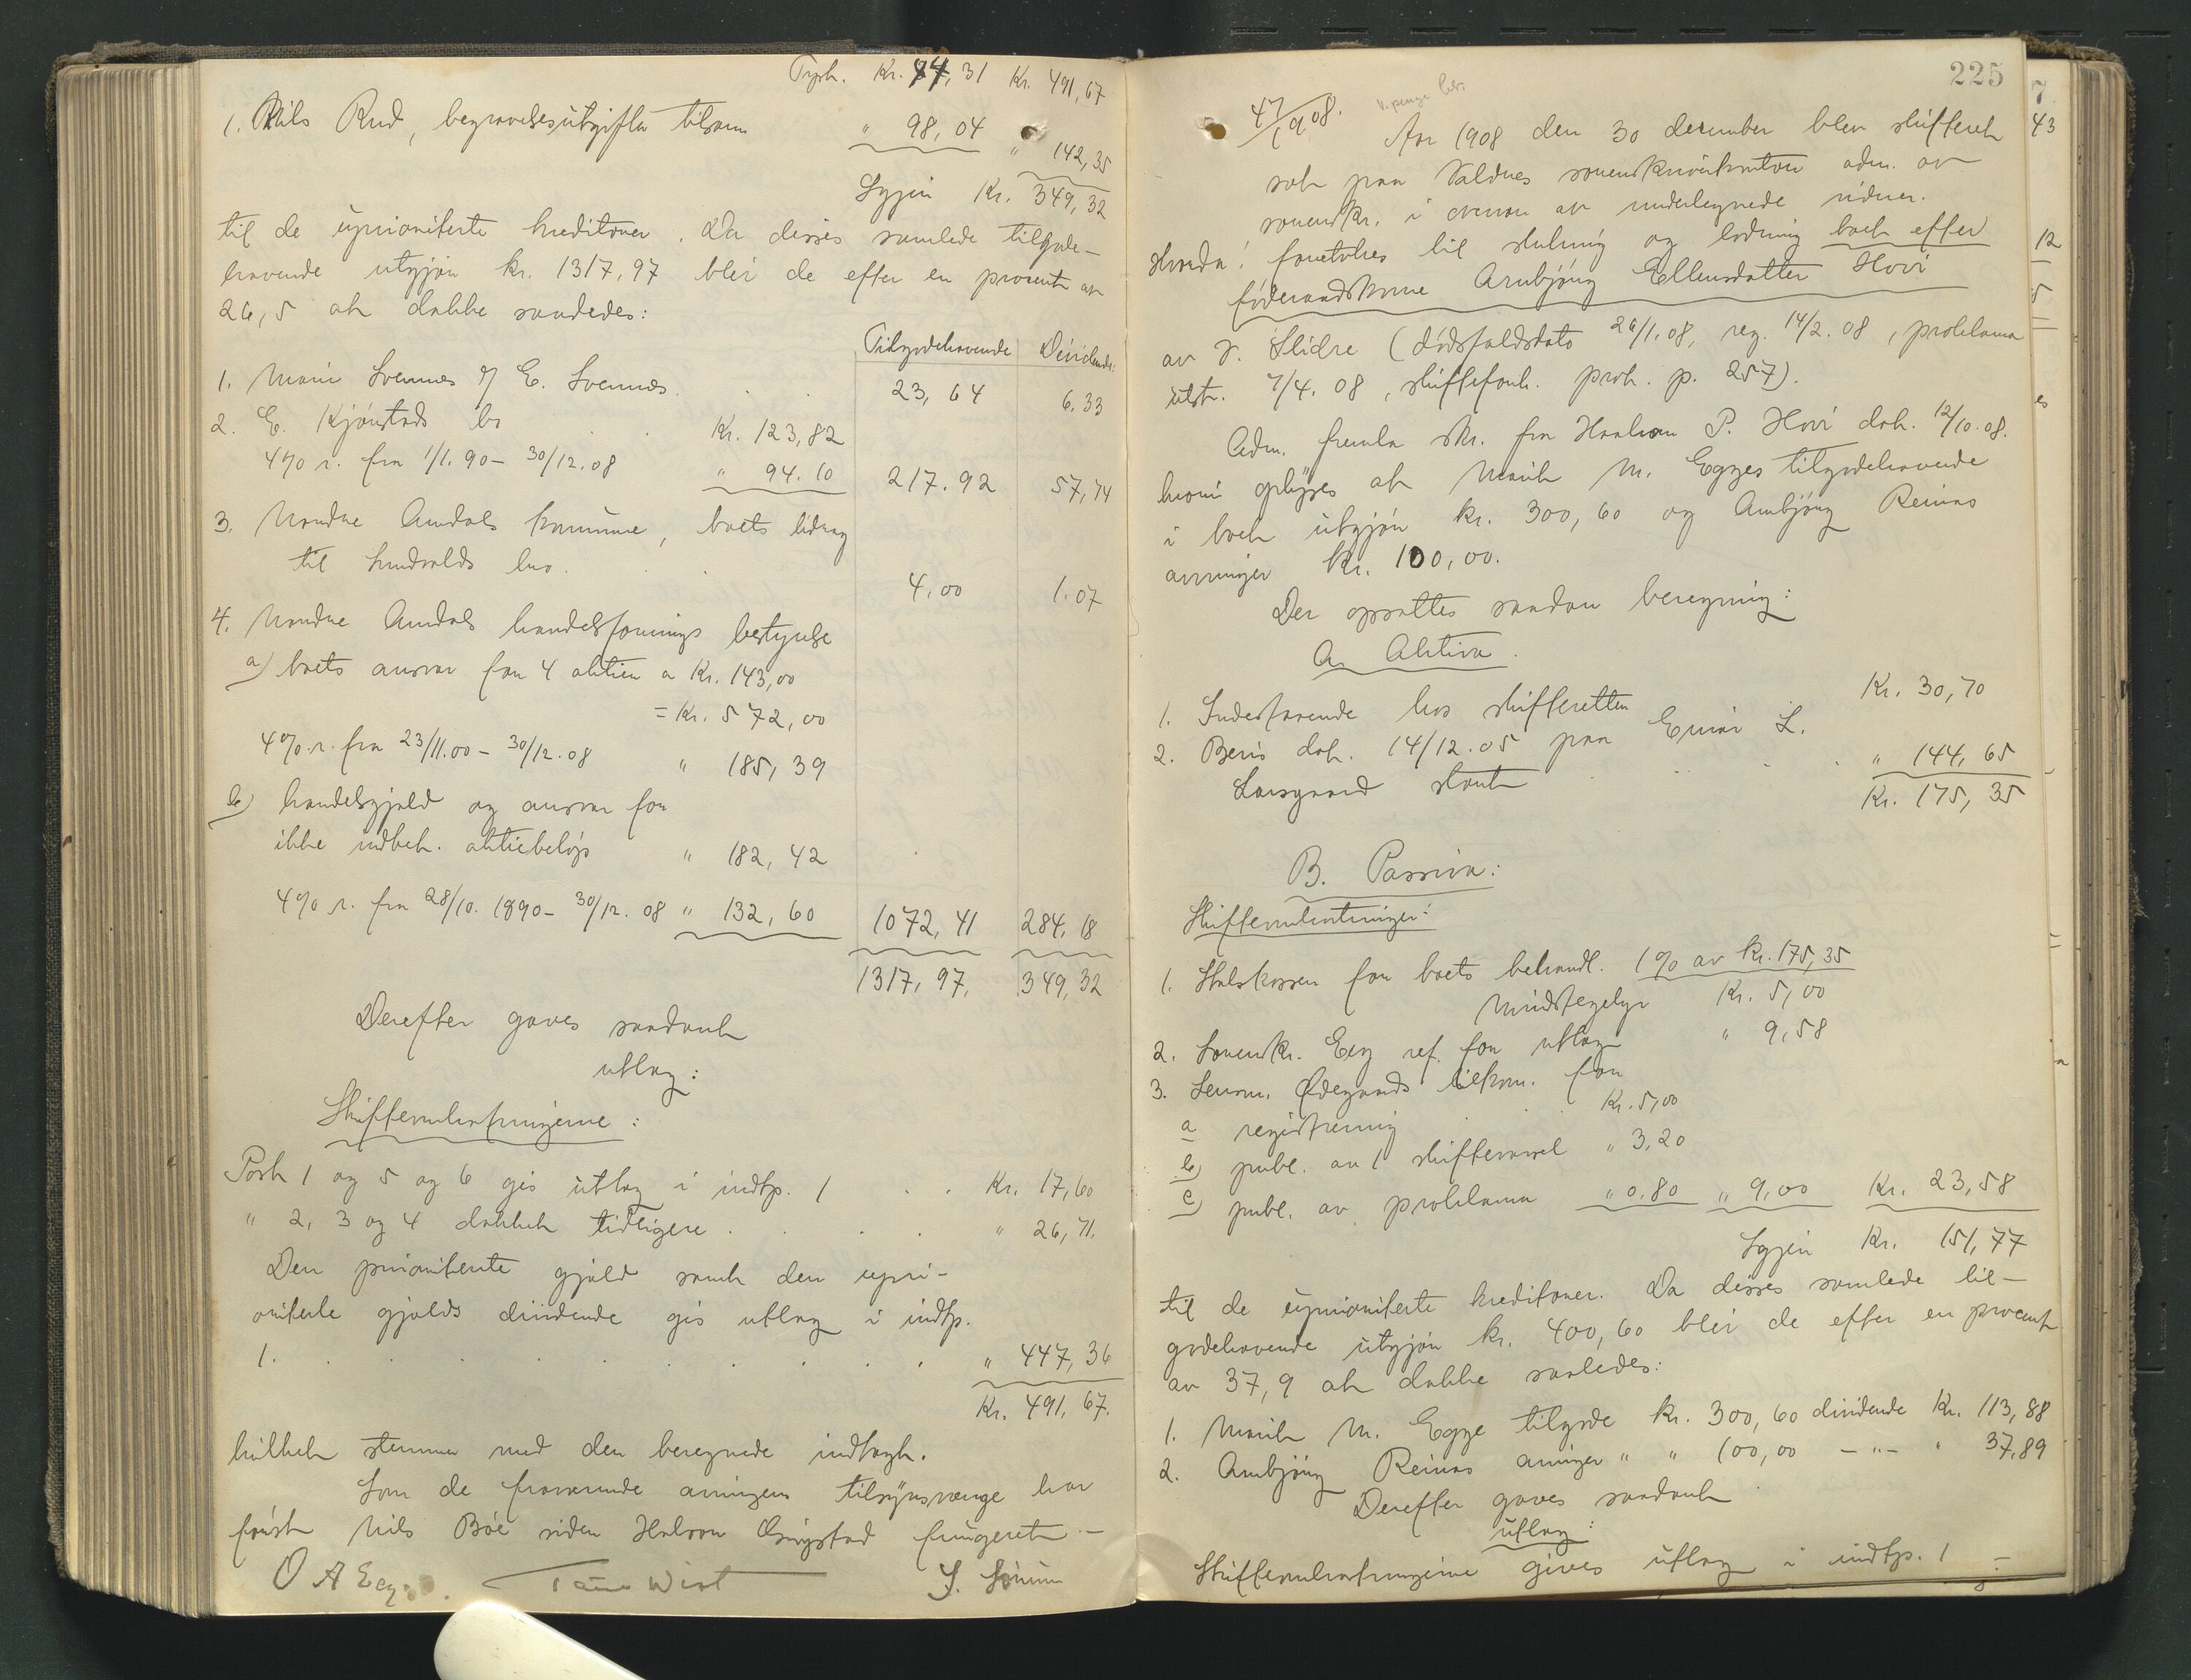 Kr. 44,31 Kr. 491,67
1. Nils Rud, begravelsesutgifter tilsam " 98,04
" 142,35
Igjen Kr. 349,32
til de uprioriterte kreditorer. Da disses samlede tilgode-
havende utgjør kr. 1317,97 blir de efter en procent av
26,5 at dække saaledes:
Tilgodehavende Dividende:
1. Marie Svennes v/ E. Svennes. 23,64 6.33
2. E. Kjønstads bo Kr. 123,82
4% r. fra 1/1.90 - 30/12.08 " 94.10 217.92 57,74
3. Nordre Aurdals kommune, boets bidrag
til 4,00 1.07
4. Nordre Aurdals handelsforenings bestyrelse
a) boets ansvar for 4 aktier a Kr. 143,00
= Kr. 572,00
4% r. fra 23/11.00 - 30/12.08 " 185,39
b) handelsgjæld og ansvar for
ikke indbet. aktiebeløp " 182,42
4% r. fra 28/10. 1890 - 30/12. 08 " 132,60 1072,41 284,18
1317,97, 349,32
Derefter gaves saadant
utlæg:
Skifteomkostningerne:
Post 1 og 5 og 6 gis utlæg i indtp. 1 . . Kr. 17,60
" 2, 3 og 4 dækket tidligere . . . . " 26,71.
Den prioriterte gjæld samt den upri-
oriterte gjælds dividende gis utlæg i indtp.
1. . . . . . . . . . " 447,36
Kr. 491,67.
hvilket stemmer med den beregnede indtægt.
Som de fraværende arvingers tilsynsværge har
først Nils Bøe siden Halvor fungeret. -
O A Eeg.
225
47/1908.
Aar 1908 den 30 december blev skifteret
sat paa Valdres sorenskriverkontor adm. av
sorenskr. i overvær av underlegnede vidner.
Hvorda: foretokes til slutning og lodning boet efter
føderaadskone Arnbjørg Ellensdatter Hovi
av V. Slidre (dødsfaldsdato 26/1.08, reg. 14/2.08, proklama
utst. 7/4.08, skifteforh. prot. p. 257).
Adm. fremla skr. fra Haakon P. Hovi dat. 12/10.08.
hvori oplyses at Marit M. Egges tilgodehavende
i boet utgjør kr. 300,60 og Arnbjørg Reinas
arvinger Kr. 100,00.
Der opsattes saadan beregning:
A. Aktiva.
1. Indestaaende hos skifteretten Kr. 30,70
2. Bevis dat. 14/12.05 paa Einar L.
" 144,65
Kr. 175,35
B. Passiva:
Skifteomkostninger:
1. Statskassen for boets behandl. 1% av kr. 175,35
Mindstegebyr Kr. 5,00
2. Sorenskr. Eeg ref. for utlæg " 9,58
3. Lensm. Ødegaards tilkom. for
a registrering . . Kr. 5,00
b) publ. av 1 " 3,20
c) publ. av proklama " 0,80 " 9,00 Kr. 23,58
Igjen Kr. 151,77
til de uprioriterte kreditorer. Da disses samlede til-
godehavende utgjør kr. 400,60 blir de efter en procent
av 37,9 at dække saaledes:
1. Marit M. Egge tilgode kr. 300,60 dividende Kr. 113,88
2. Arnbjørg Reinas arvinger " " 100,00 - " - " 37,89
Derefter gaves saadant
utlæg:
Skifteomkostningerne gives utlæg i indtp. 1 -
7
43
12
5